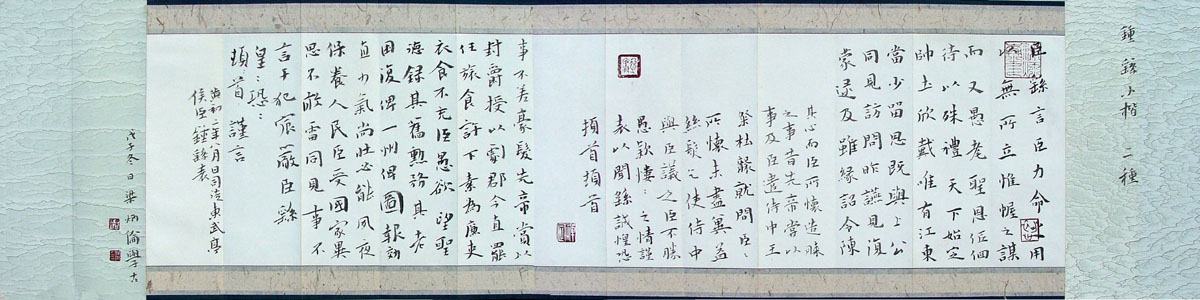 鍾繇小楷 二種
臣繇言臣力命之用
以無所立惟幄之謀
而又愚老聖恩低佪
待以殊禮天下始定
帥土欣戴唯有江東
當少留思既與上公
同見訪問昨讌見復
蒙逮及雖緣詔令陳
其心而臣所懷造膝
之事昔先帝常以
事及臣遣侍中王
粲杜襲就問臣〻
所懷未盡冀益
絲髮乞使侍中
與臣議之臣不勝
愚款慺〻之情謹
表以聞繇誠惶恐
頓首頓首
事不差豪髮先帝賞以
封爵授以劇郡今直罷
任旅食許下素為廉吏
衣食不充臣愚欲望聖
德錄其舊勳矜其老
困復俾一州俾圖報効
直力氣尚壯必能夙夜
保養人民臣受國家異
恩不敢雷同見事不
言干犯宸嚴臣繇
皇〻恐〻
頓首謹言
黃初二年八月日司徒東武亭
侯臣鍾繇表
戊子冬日梁炳倫學古